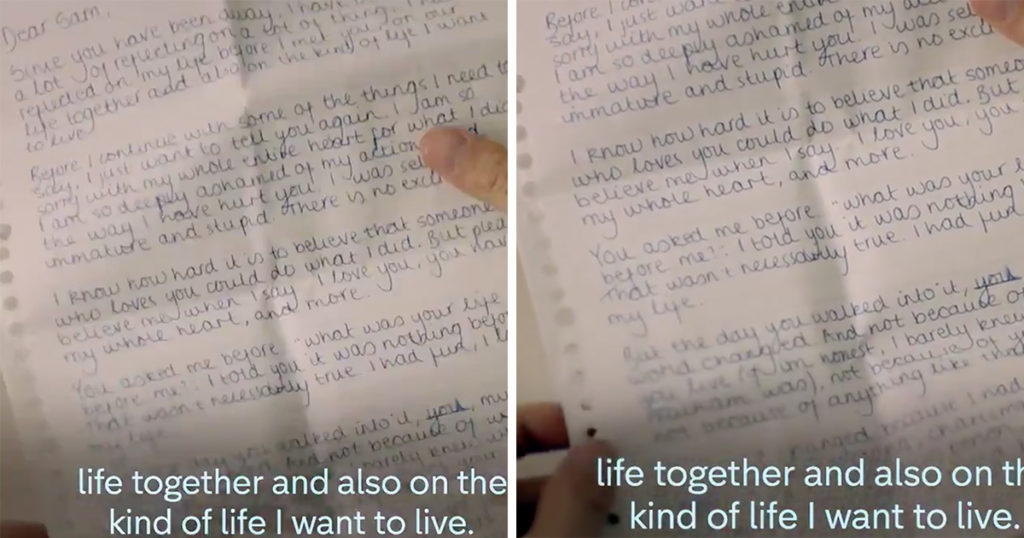 Dear Sam,
Since you have been away, I have
a lot of reflecting on a lot of thing. I
reflected on my life before I met you, on our
life together add also on the kind of life I want
to live
Before I continue with some of the things I need to
say, I just want to tell you again, I am so
sorry with my whole entire heart for what I did
I am so deeply ashamed of my action
the way I have hurt you I was sel
immature and stupid. There is no exc
I know how hard it is to believe that someone
who loves you could do what I did. But plea
believe me when I say I love you, you hav
my whole heart, and more.
You asked me before "what was your life
before me". I told you it was nothing befo
That wasn't necessarily true I had fun, I l
my life
walked into it, you, my
And not because of w
barely knew
life together and also on the
kind of life I want to live.
Before I con
say, I just wan
sorry with my whole entire
I am so deeply ashamed of my a
the way I have hurt you I was sel
immature and stupid. There is no exc
I know how hard it is to believe that someo
who loves you could do what I did. But
believe me when I say - I love you, you
my whole heart, and more.
You asked me before "what was your l
before me". I told you it was nothing
That wasn't necessarily true. I had fun
my life.
But the day you walked into it, you
world changed And not because of
you live (if I am honest, I barely knew
was), not because of y
not because of anything like tha
changed because I had
life together and also on th
kind of life I want to live.